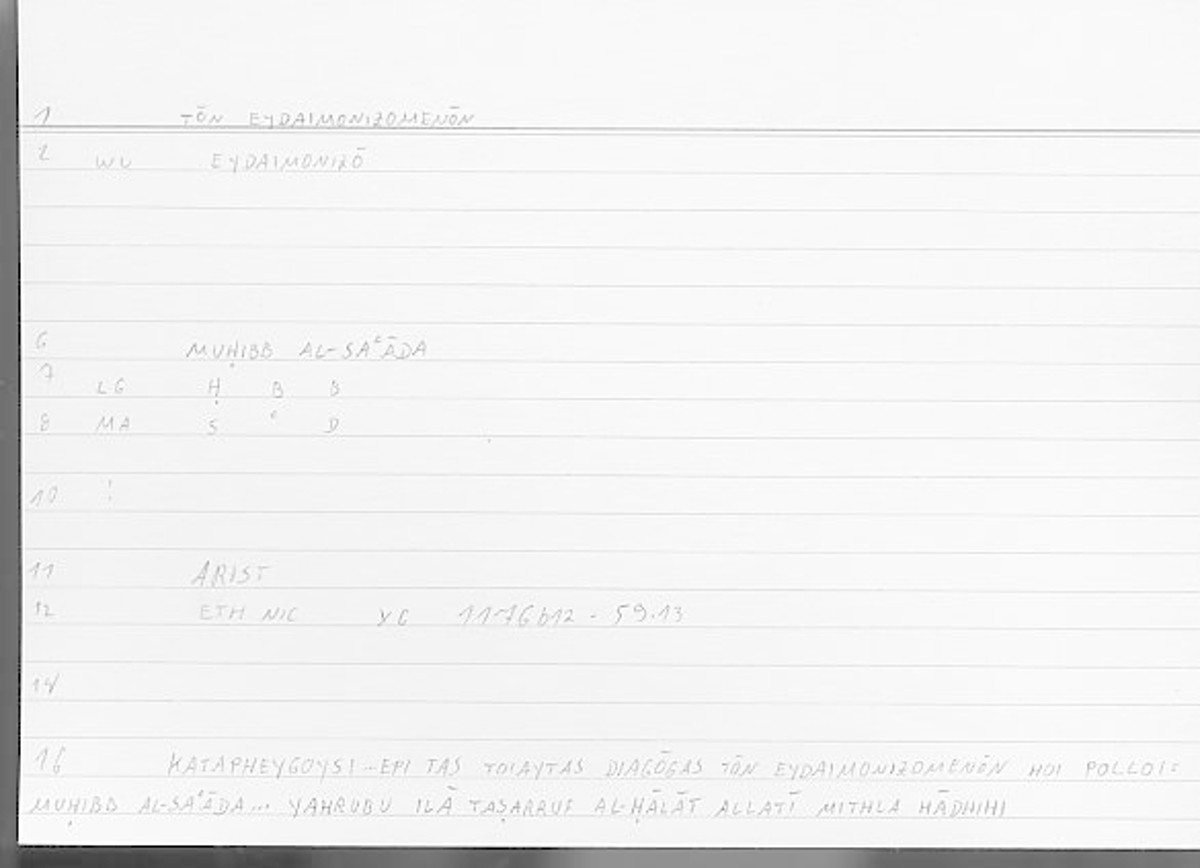 1 TŌN EYDAIMONIZOMENŌN
2 WU EYDAIMONIZŌ
6 MUḤIBB AL-SAʿĀDA
7 LG Ḥ B B
8 MA S ʿ D
10 !
11 ARIST
12 ETH NIC XG 1176b12 - 59.13
14
16 KATAPHEYGOYSI...EPI TAS TOIAYTAS DIAGŌGAS TŌN EYDAIMONIZOMENŌN HOI POLLOI:
MUḤIBB AL-SAʿĀDA... YAHRUBU ILĀ TAṢARRUF AL-ḤĀLĀT ALLATĪ MITHLA HĀDHIHI